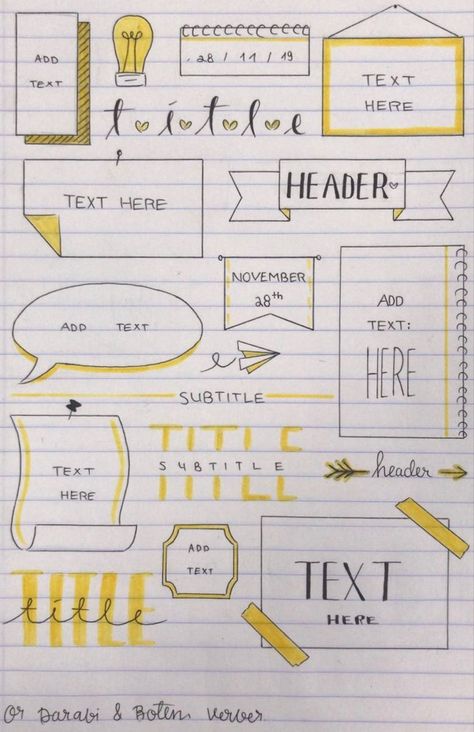 ADD
TEXT
28 / 11 / 19
TEXT
HERE
title
TEXT HERE
HEADER
NOVEMBER
28th
ADD
TEXT:
HERE
ADD TEXT
SUBTITLE
TEXT
HERE
TITLE
SUBTITLE
header
ADD
TEXT
TEXT
HERE
TITLE
title
Or Darabi &